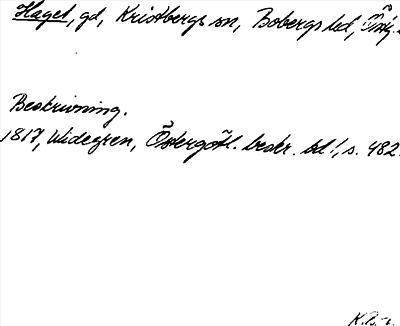 Haget, gd, Kristbergs sn, Bobergs hd, Östg.
Beskrivning.
1817, Widegren, Östergötl. beskr. bd 1, s. 482.